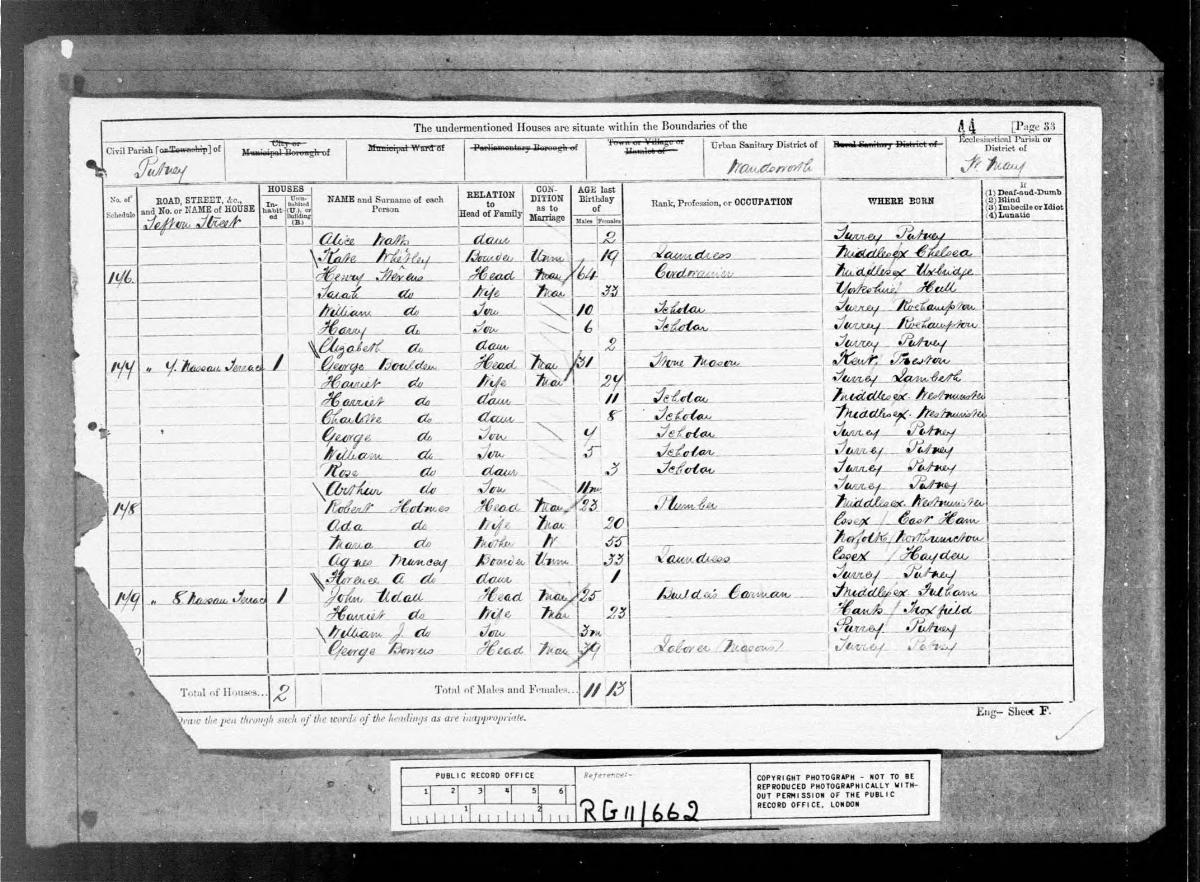 The undermentioned Houses are situate within the Boundaries of the
44 [Page 33
Civil Parish [or Township] of City or Municipal Borough of Municipal Ward of Parliamentary Borough of Town or Village or Hamlet of Urban Sanitary District of Rural Sanitary District of Ecclesiastical Parish or District of
Putney Wandsworth St. Mary
No. of Schedule ROAD, STREET, &c., and No. or NAME of HOUSE HOUSES In-habit-ed Unin-habited (U.), or Building (B.) NAME and Surname of each Person RELATION to Head of Family CON-DITION as to Marriage AGE last Birthday of Males Females Rank, Profession, or OCCUPATION WHERE BORN If (1) Deaf-and-Dumb (2) Blind (3) Imbecile or Idiot (4) Lunatic
Sefton Street
Alice Watts daur 2 Surrey Putney
Kate Boarder Unm 19 Laundress Middlesex Chelsea
146 Henry Stevens Head Mar 64 Cordwainer Middlesex Uxbridge
Sarah do Wife Mar 33 Yorkshire Hull
William do Son 10 Scholar Surrey Roehampton
Harry do Son 6 Scholar Surrey Roehampton
Elizabeth do daur 2 Surrey Putney
147 " 4. Nassau Terrace 1 George Boulden Head Mar 31 Stone Mason Kent,
Harriet do Wife Mar 24 Surrey Lambeth
Harriet do daur 11 Scholar Middlesex Westminster
Charlotte do daur 8 Scholar Middlesex Westminster
George do Son 7 Scholar Surrey Putney
William do Son 5 Scholar Surrey Putney
Rose do daur 3 Scholar Surrey Putney
Arthur do Son 11m Surrey Putney
148 Robert Holmes Head Mar 23 Plumber Middlesex Westminster
Ada do Wife Mar 20 Essex East Ham
Maria do Mother W 55 Norfolk
Agnes Muncey Boarder Unm 33 Laundress Essex Hayden
Florence A do daur 1 Surrey Putney
149 " 8 Nassau Terrace 1 John Udall Head Mar 25 Builders Carman Middlesex Fulham
Harriet do Wife Mar 23 Hants Froxfield
William J. do Son 3m Surrey Putney
George Bowers Head Mar 39 Laborer (Masons) Surrey Putney
Total of Houses... 2 Total of Males and Females... 11 13
Draw the pen through such of the words of the headings as are inappropriate.
Eng— Sheet F.
PUBLIC RECORD OFFICE
1 2 3 4 5 6
1 2
Reference:-
RG 11/662
COPYRIGHT PHOTOGRAPH - NOT TO BE
REPRODUCED PHOTOGRAPHICALLY WITH-
OUT PERMISSION OF THE PUBLIC
RECORD OFFICE, LONDON